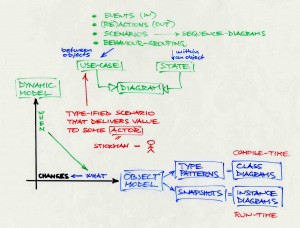 • EVENTS (IN)
• (RE)ACTIONS (OUT)
• SCENARIOS → SEQUENCE-DIAGRAMS
• BEHAVIOUR-GROUPING
between objects
within an object
USE-CASE
STATE
DIAGRAM
DYNAMIC MODEL
WHEN
TYPE-IFIED SCENARIO
THAT DELIVERS VALUE
TO SOME ACTOR
=
STICKMAN -
COMPILE-TIME
CHANGES ← WHAT
OBJECT MODEL
TYPE PATTERNS = CLASS DIAGRAMS
SNAPSHOTS = INSTANCE DIAGRAMS
RUN-TIME